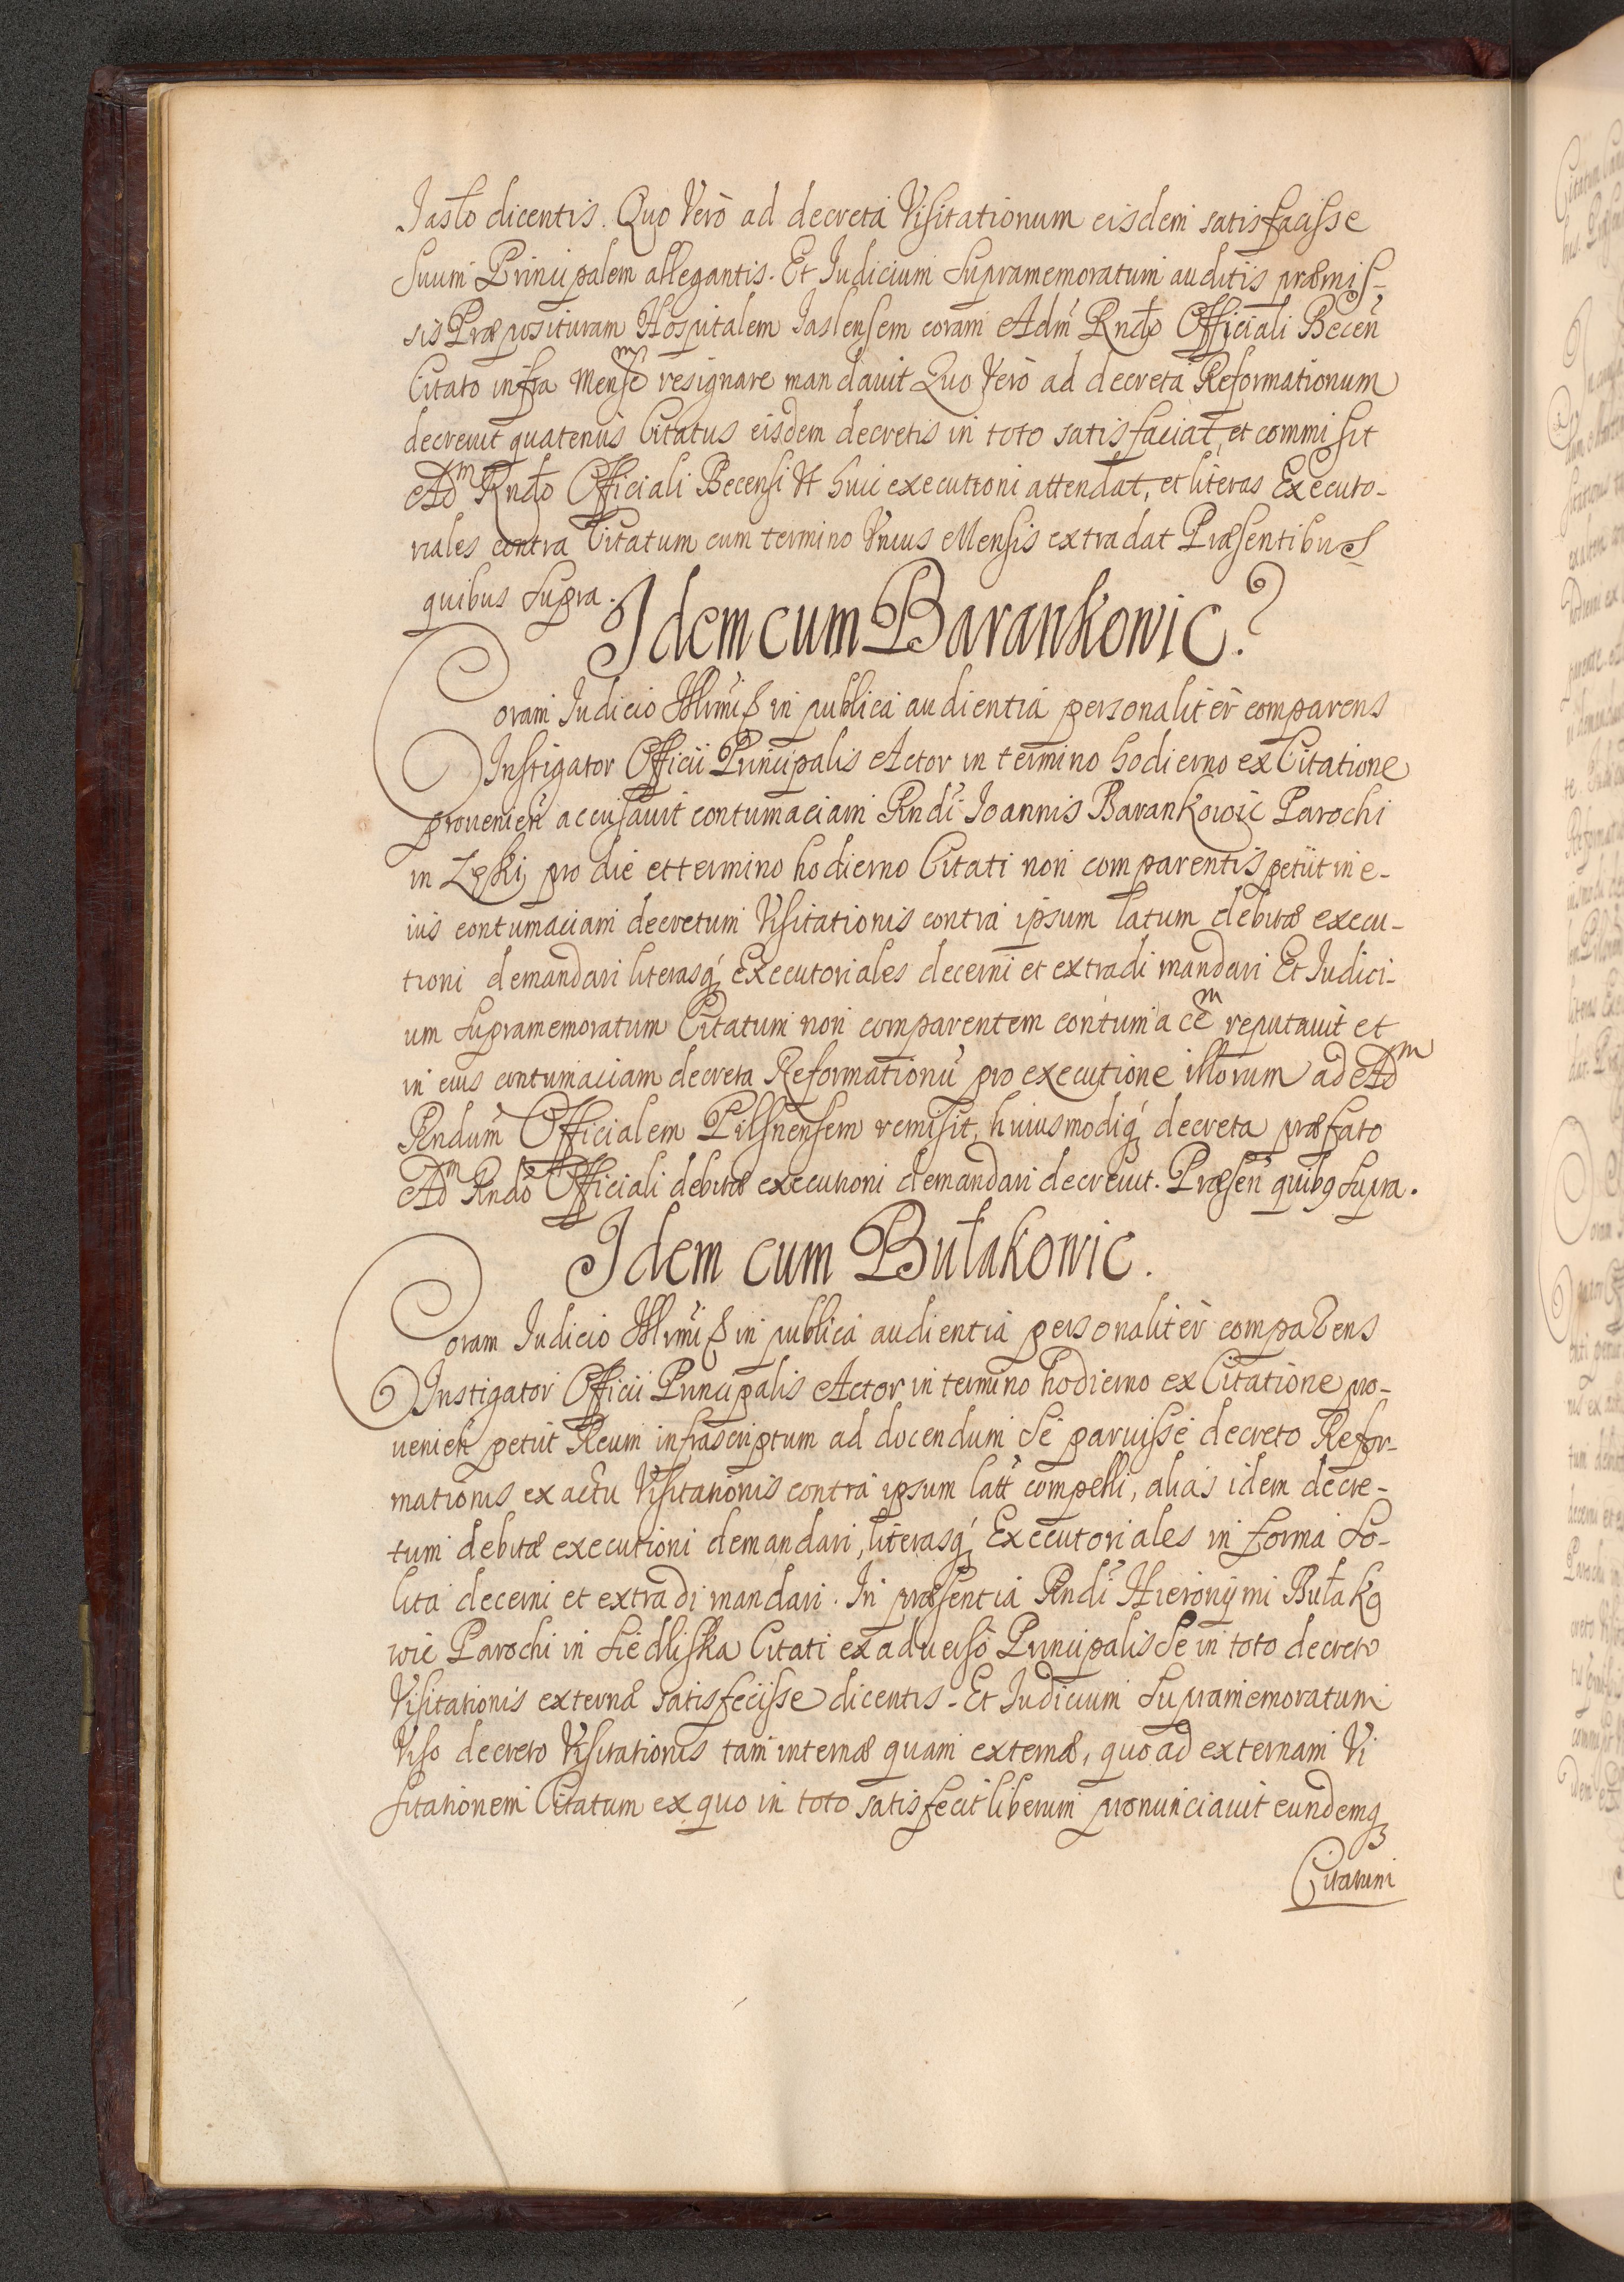 Jasło dicentis. Quo Verò ad decreta Visitationum eisdem satisfacisse
suum Principalem allegantis. Et Iudicium supramemoratum auditis præmis-
sis Præposituram Hospitalem Jaslensem coram Adm Rndo Officiali Becen
Citato infra mensem resignare mandavit Quo Verò ad decreta Reformationum
decrevit quatenus Citatus eisdem decretis in toto satisfaciat, et commisit
Adm Rndo Officiali Becensi Ut huic executioni attendat, et literas Executo-
riales contra Citatum cum termino Unius Mensis extradat Præsentibus
quibus supra.
Idem cum Barankowic?
Coram Iudicio Illrmi in publica audientia personalitèr comparens
Instigator Officii Principalis Actor in termino hodierno ex Citatione
provenien accusavit contumaciam Rndi Ioannis Barankowic Parochi
in Zęki, pro die et termino hodierno Citati non comparentis petiit in e-
ius contumaciam decretum Visitationis contra ipsum latum debitæ execu-
tioni demandari literasq Executoriales decerni et extradi mandari Et Iudici-
um supramemoratum Citatum non comparentem contumacem reputavit et
in eius contumaciam decreta Reformationu pro executione illorum ad Adm
Rndum Officialem Pilsnensem remisit, huiusmodiq decreta præfato
Adm Rndo Officiali debitæ executioni demandari decrevit. Præsen quibq supra.
Idem cum Butakowic.
Coram Iudicio Illrmi in publica audientia personalitèr comparens
Instigator Officii Principalis Actor in termino hodierno ex Citatione pro-
venien petiit Reum infrascriptum ad docendum se paruisse decreto Refor-
mationis ex actu Visitationis contra ipsum latt compelli, alias idem decre-
tum debitæ executioni demandari, literasq Executoriales in forma so-
lita decerni et extradi mandari. In præsentia Rndi Hieronymi Butako
wic Parochi in Siedliska Citati ex adverso Principalis se in toto decreto
Visitationis externæ satisfecisse dicentis. Et Iudicium supramemoratum
Viso decreto Visitationis tam internæ quam externæ, quo ad externam Vi
sitationem Citatum ex quo in toto satisfecit liberum pronunciavit eundemq
Citatum